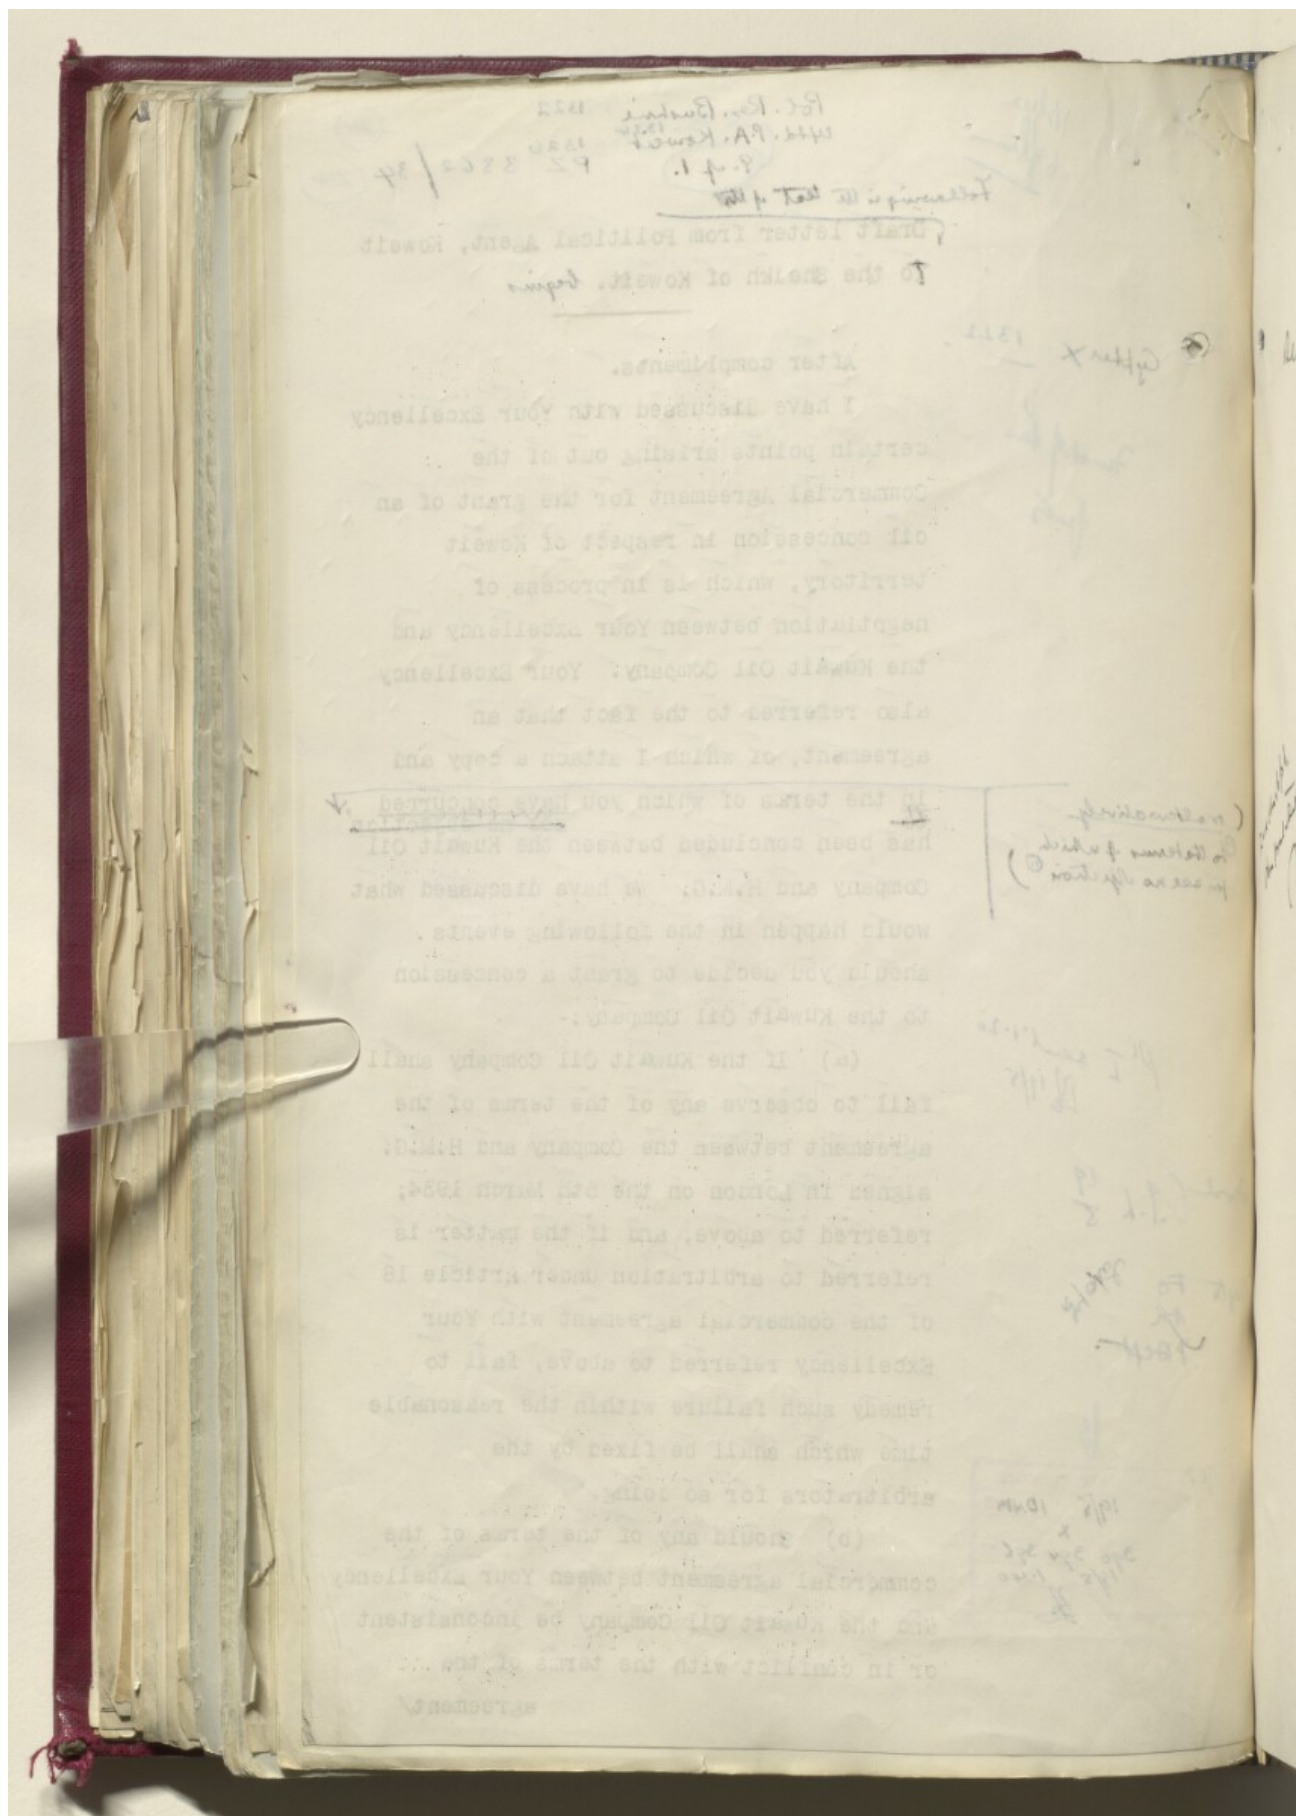 Pol. Res. Bushire 1322
rptd. P.A. Koweit
G. of I.
PZ 3362/34
Following is the text of the
Draft letter from Political Agent, Koweit
To the Sheikh of Koweit. begins
Cypher X 1322
After compliments.
I have discussed with Your Excellency
certain points arising out of the
Commercial Agreement for the grant of an
oil concession in respect of Koweit
territory, which is in process of
negotiation between Your Excellency and
the Kuwait Oil Company. Your Excellency
also referred to the fact that an
agreement, of which I attach a copy and
in the terms of which you have concurred
(alternatively
to the terms of which
you see no objection)
has been concluded between the Kuwait Oil
Company and H.M.G. We have discussed what
would happen in the following events
should you decide to grant a concession
to the Kuwait Oil Company:-
(a) If the Kuwait Oil Company shall
fail to observe any of the terms of the
agreement between the Company and H.M.G.
signed in London on the 5th March 1934;
referred to above, and if the matter is
referred to arbitration under Article 18
of the commercial agreement with Your
Excellency referred to above, fail to
remedy such failure within the reasonable
time which shall be fixed by the
arbitrators for so doing.
(b) Should any of the terms of the
commercial agreement between Your Excellency
and the Kuwait Oil Company be inconsistent
or in conflict with the terms of the
agreement/